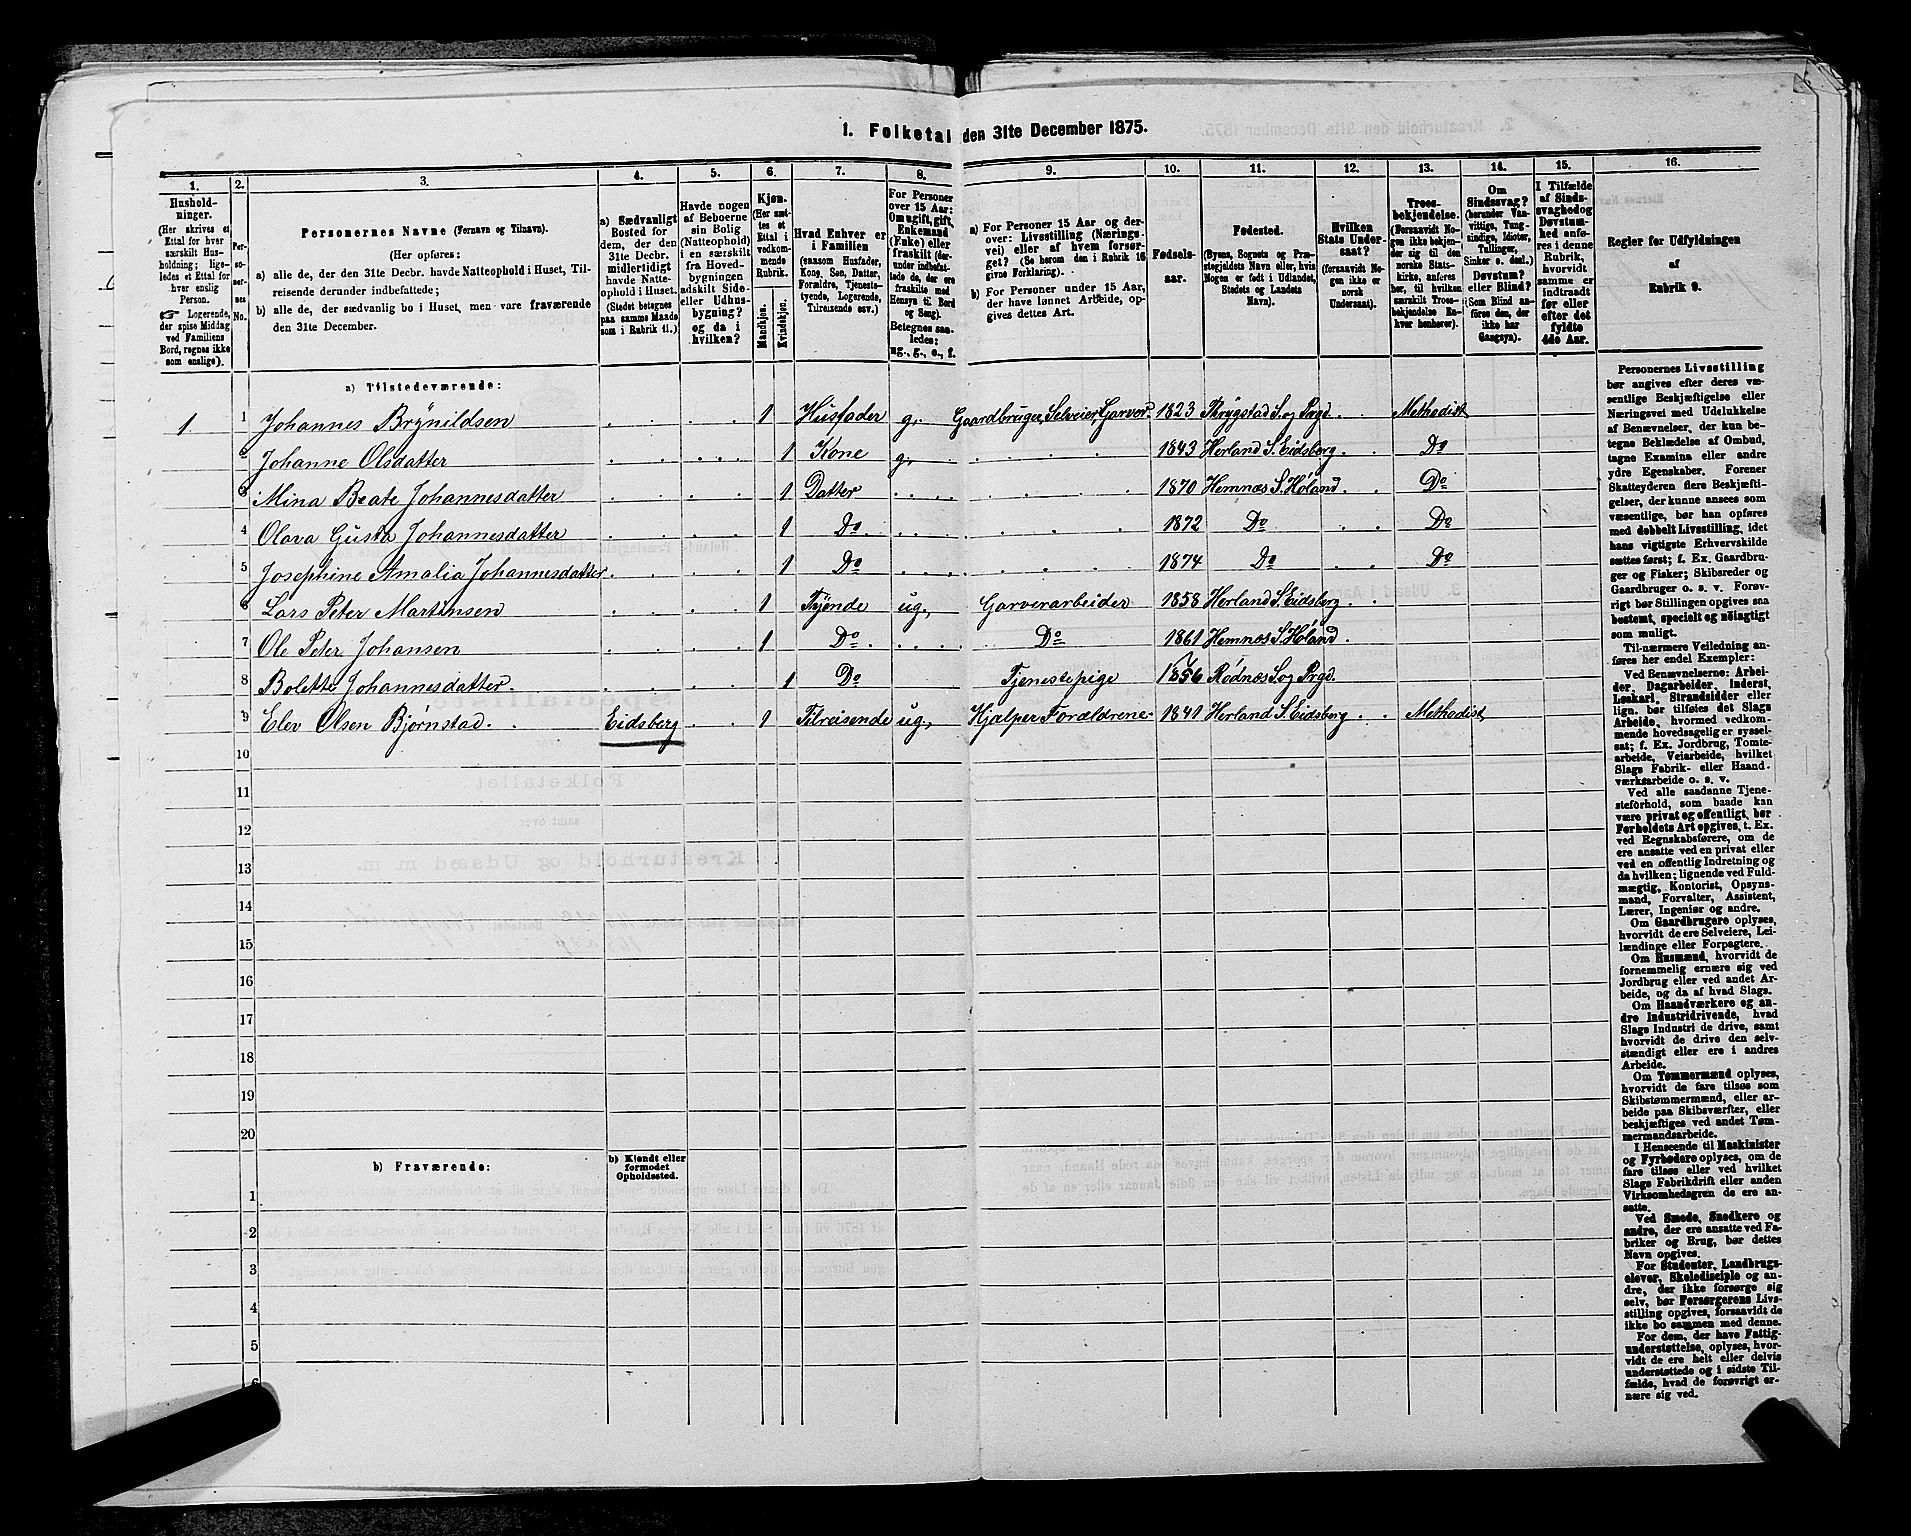 1. Folketal den 31te December 1875.
1.
2.
3.
4.
5.
6.
7.
8.
9.
10.
11.
12.
13.
14.
15.
16.
Hushold-
ninger.
(Her skrives et
Ettal for hver
særskilt Hus-
holdning; lige-
ledes et Ettal for
hver enslig
Person.
☞ Logerende,
der spise Middag
ved Familiens
Bord, regnes ikke
som enslige).
Per-
so-
ner-
nes
No.
Personernes Navne (Fornavn og Tilnavn).
(Her opføres:
a) alle de, der den 31te Decbr. havde Natteophold i Huset, Til-
reisende derunder indbefattede;
b) alle de, der sædvanlig bo i Huset, men vare fraværende
den 31te December.
a) Sædvanligt
Bosted for
dem, der den
31te Decbr.
midlertidigt
havde Natte-
ophold i Huset.
(Stedet betegnes
paa samme Maade
som i Rubrik 11.)
Havde nogen
af Beboerne
sin Bolig
(Natteophold)
i en særskilt
fra Hoved-
bygningen
adskilt Side-
eller Udhus-
bygning?
og da i
hvilken?
Kjøn.
(Her sæt-
tes et
Ettal i
vedkom-
mende
Rubrik.
Mandkjøn.
Kvindekjøn.
Hvad Enhver er
i Familien
(saasom Husfader,
Kone, Søn, Datter,
Forældre, Tjeneste-
tyende, Logerende,
Tilreisende osv.)
For Personer
over 15 Aar:
Om ugift, gift,
Enkemand
(Enke) eller
fraskilt (der-
under indbefat-
tede de, der ere
fraskilte med
Hensyn til Bord
og Seng).
Betegnes saa-
ledes:
ug., g., e., f.
a) For Personer 15 Aar og der-
over: Livsstilling (Nærings-
vei) eller af hvem forsør-
get? (Se herom den i Rubrik 16
givne Forklaring).
b) For Personer under 15 Aar,
der have lønnet Arbeide, op-
gives dettes Art.
Fødsels-
aar.
Fødested.
(Byens, Sognets og Præ-
stegjeldets Navn eller, hvis
Nogen er født i Udlandet,
Stedets og Landets
Navn).
Hvilken
Stats Under-
saat?
(forsaavidt No-
gen ikke er
norsk
Undersaat).
Troes-
bekjendelse.
(Forsaavidt No-
gen ikke bekjen-
der sig til den
norske Stats-
kirke, anføres
her, til hvilken
særskilt Troes-
bekjendelse En-
hver henhører).
Om
Sindssvag?
(herunder Van-
vittige, Tung-
sindige, Idioter,
Tullinger,
Sinker o. desl.).
Døvstum?
eller Blind?
(Som Blind an-
føres den, der
ikke har
Gangsyn).
I Tilfælde
af Sinds-
svaghed og
Døvstum-
hed anfø-
res i denne
Rubrik,
hvorvidt
samme er
indtraadt
før eller
efter det
fyldte
4de Aar.
Regler for Udfyldningen
af
Rubrik 9.
a) Tilstedeværende:
1 1 Johannes Brynildsen 1 Husfader g. Gaardbruger, Selveier, Garver 1823 Thrygstad S. og Prgd. Methodist
2 Johanne Olsdatter 1 Kone g. 1843 Herland S. Eidsberg Do
3 Mina Beate Johannesdatter 1 Datter 1870 Hemnæs S. Høland Do
4 Olava Gusta Johannesdatter 1 Do 1872 Do Do
5 Josephine Amalia Johannesdatter 1 Do 1874 Do Do
6 Lars Peter Martinsen 1 Tyende ug. Garverarbeider 1858 Herland S. Eidsberg
7 Ole Peter Johansen 1 Do Do 1861 Hemnæs S. Høland
8 Bolette Johannesdatter. 1 Do Tjenestepige 1856 Rødnæs S. og Prgd.
9 Elev Olsen Bjørnstad. Eidsberg 1 Tilreisende ug. Hjælper Forældrene 1841 Herland S. Eidsberg Methodist
10
11
12
13
14
15
16
17
18
19
20
b) Fraværende:
b) Kjendt eller
formodet
Opholdssted.
1
2
3
4
5
6
Personernes Livsstilling
bør angives efter deres væ-
sentlige Beskjæftigelse eller
Næringsvei med Udelukkelse
af Benævnelser, der kun be-
tegne Beklædelse af Ombud,
tagne Examina eller andre
ydre Egenskaber. Forener
Skatteyderen flere Beskjæfti-
gelser, der kunne ansees som
væsentlige, bør han opføres
med dobbelt Livsstilling, idet
hans vigtigste Erhvervskilde
sættes først; f. Ex. Gaardbru-
ger og Fisker; Skibsreder og
Gaardbruger o. s. v. Forøv-
rigt bør Stillingen opgives saa
bestemt, specielt og nöiagtigt
som muligt.
Til nærmere Veiledning an-
føres her endel Exempler:
Ved Benævnelserne: Arbei-
der, Dagarbeider, Inderst,
Løskarl, Strandsidder eller
lign. bør tilføies det Slags
Arbeide, hvormed vedkom-
mende hovedsagelig er syssel-
sat; f. Ex. Jordbrug, Tomte-
arbeide, Veiarbeide, hvilket
Slags Fabrik- eller Haand-
værksarbeide o. s. v.
Ved alle saadanne Tjene-
steforhold, som baade kan
være privat og offentligt, bør
Forholdets Art opgives, t. Ex.
ved Regnskabsførere, om de
ere ansatte ved en privat eller
ved en offentlig Indretning og
da hvilken; lignende ved Fuld-
mægtig, Kontorist, Opsyns-
mand, Forvalter, Assistent,
Lærer, Ingeniør og andre.
Om Gaardbrugere oplyses,
hvorvidt de ere Selveiere, Lei-
lændinge eller Forpagtere.
Om Husmænd, hvorvidt de
fornemmelig ernære sig ved
Jordbrug eller ved andet Ar-
beide, og da af hvad Slags.
Om Haandværkere og an-
dre Industridrivende, hvad
Slags Industri de drive, samt
hvorvidt de drive den selv-
stændigt eller ere i andres
Arbeide.
Om Tømmermænd oplyses,
hvorvidt de fare tilsøs som
Skibstømmermænd, eller ar-
beide paa Skibsværfter, eller
beskjæftiges ved andet Tøm-
mermandsarbeide.
I Henseende til Maskinister
og Fyrbødere oplyses, om de
fare tilsøs eller ved hvilket
Slags Fabrikdrift eller anden
Virksomhedsgren de ere an-
satte.
Ved Smede, Snedkere og
andre, der ere ansatte ved Fa-
briker og Brug, bør dettes
Navn opgives.
For Studenter, Landbrugs-
elever, Skoledisciple og an-
dre, der ikke forsørge sig
selv, bør Forsørgerens Livs-
stilling opgives, forsaavidt de
ikke bo sammen med denne.
For dem, der have Fattig-
understøttelse, oplyses, hvor-
vidt de ere helt eller delvis
understøttede og i sidste Til-
fælde, hvad de forøvrigt er-
nære sig ved.